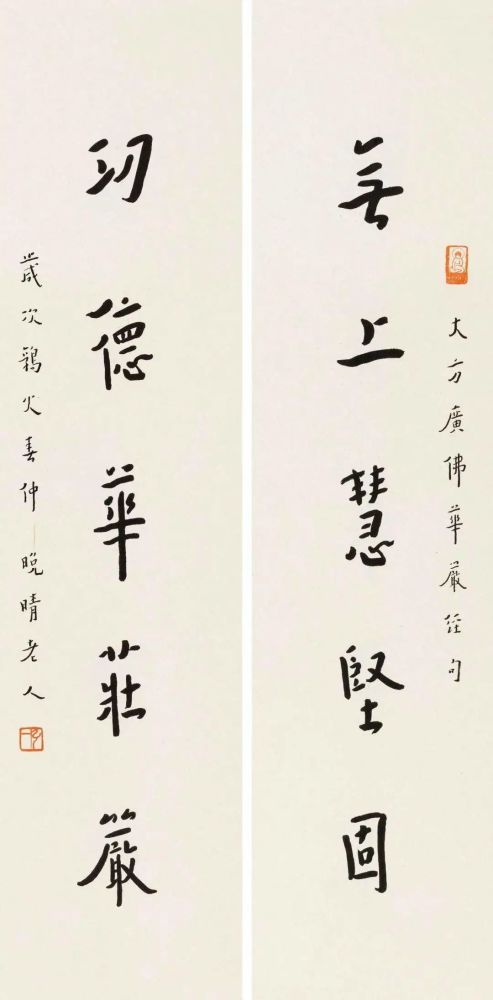 大方廣佛華嚴経句
無上慧堅固
功德華莊嚴
歲次鶉火春仲晚晴老人